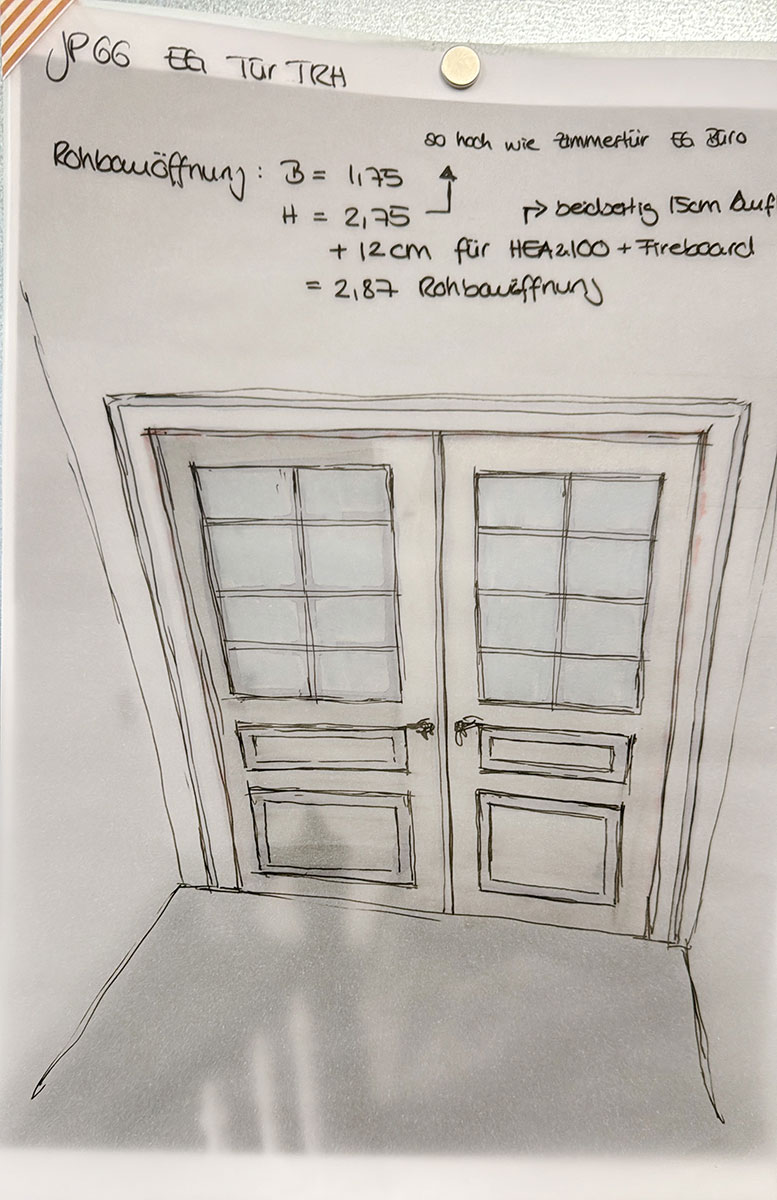 JP66 EG Tür TRH
so hoch wie Zimmertür EG Büro
Rohbauöffnung: B = 1,75
H = 2,75
beidseitig 15cm Auf
+ 12cm für HEA 100 + Fireboard
= 2,87 Rohbauöffnung